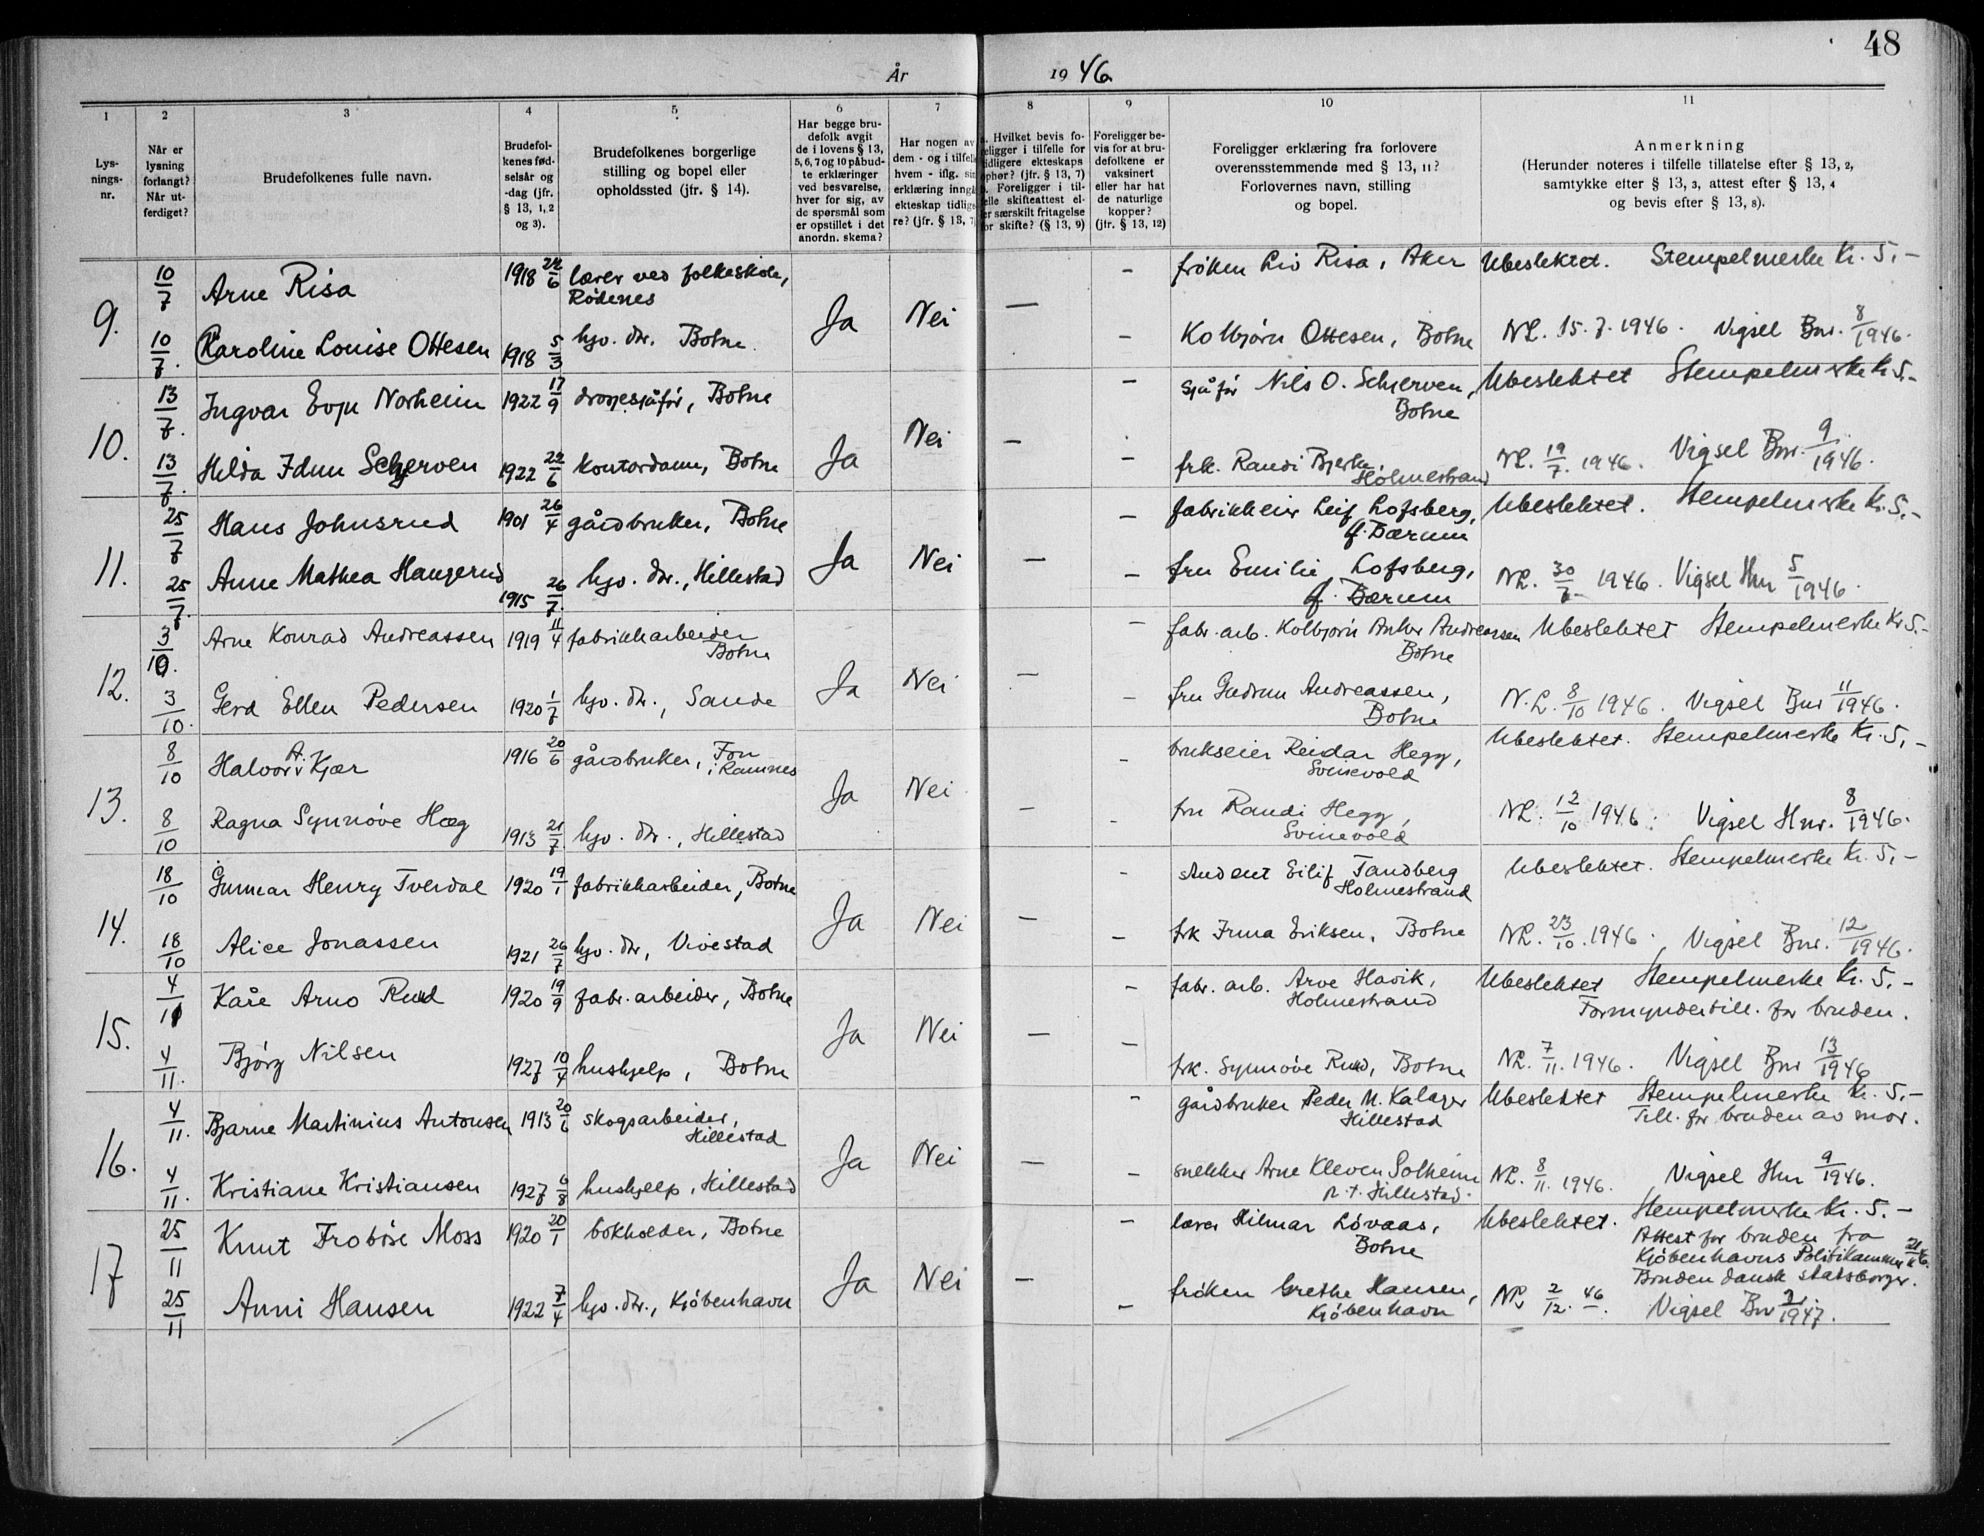 48
År 1946
1
2
3
4
5
6
7
8
9
10
11
Lys-
nings-
nr.
Når er
lysning
forlangt?
Når ut-
ferdiget?
Brudefolkenes fulle navn.
Brudefol-
kenes fød-
selsår og
-dag (jfr.
§ 13, 1, 2
og 3).
Brudefolkenes borgerlige
stilling og bopel eller
opholdssted (jfr. § 14).
Har begge bru-
defolk avgit
de i lovens § 13,
5, 6, 7 og 10 påbud-
te erklæringer
ved besvarelse,
hver for sig, av
de spørsmål som
er opstillet i det
anordn. skema?
Har nogen av
dem - og i tilfelle
hvem - iflg. sin
erklæring inngå
ekteskap tidlige
re? (jfr. § 13, 7
a. Hvilket bevis fo-
religger i tilfelle for
tidligere ekteskaps
ophør? (jfr. § 13, 7)
b. Foreligger i til-
felle skifteattest el-
er særskilt fritagelse
for skifte? (§ 13, 9)
Foreligger be-
vis for at bru-
defolkene er
vaksinert
eller har hat
de naturlige
kopper?
(jfr. § 13, 12)
Foreligger erklæring fra forlovere
overensstemmende med § 13, 11?
Forlovernes navn, stilling
og bopel.
Anmerkning
(Herunder noteres i tilfelle tillatelse efter § 13, 2,
samtykke efter § 13, 3, attest efter § 13, 4
og bevis efter § 13, 8).
9. 10/7 Arne Risa 1918 22/6 lærer ved folkeskole, Rødenes Ja Nei — – frøken Liv Risa, Aker Ubeslektet. Stempelmerke Kr. 5,-
10/7. Karoline Louise Ottesen 1918 5/3 hjv. dtr. Botne – Kolbjørn Ottesen, Botne NL. 15.7.1946. Vigsel Bnr. 8/1946.
10. 13/7. Ingvar Evju Norheim 1922 17/9 drosjesjåfør, Botne Ja Nei — – sjåfør Nils O. Schjerven, Botne Ubeslektet Stempelmerke Kr 5.-
13/7. Hilda Idun Schjerven 1922 22/6 kontordame, Botne – frk. Randi Bjerke, Holmestrand NL. 19/7. 1946. Vigsel Bnr. 9/1946.
11. 25/7 Hans Johnsrud 1901 26/4 gårdbruker, Botne Ja Nei — – fabrikkeier Leif Lofsberg, Bærum Ubeslektet. Stempelmerke Kr. 5.-
25/7. Anne Mathea Haugerud 1915 26/7. hjv. dtr., Hillestad – fru Emilie Lofsberg, Bærum NL. 30/7 1946. Vigsel Hnr 5/1946.
12. 3/10. Arne Konrad Andreassen 1919 11/4 fabrikkarbeider Botne Ja Nei — – fabr. arb. Kolbjørn Anker Andreassen Botne Ubeslektet Stempelmerke Kr 5.-
3/10. Gerd Ellen Pedersen 1920 1/7 hjv. dtr., Sande – fru Gudrun Andreassen, Botne N.L. 8/10 1946. Vigsel Bnr 11/1946.
13. 8/10 Halvor A. Kjær 1916 20/6 gårdbruker, Fon i Ramnes Ja Nei — – brukseier Reidar Hegg, Svinevold Ubeslektet. Stempelmerke Kr. 5,-
8/10 Ragna Synnøve Høeg 1913 21/7 hjv. dtr., Hillestad – fru Randi Hegg, Svinevold NL. 12/10 1946. Vigsel Hnr. 8/1946.
14. 18/10 Gunnar Henry Tverdal 1920 19/1 fabrikkarbeider, Botne Ja Nei — – student Eilif Tandberg Holmestrand Ubeslektet. Stempelmerke Kr. 5,-
18/10 Alice Jonassen 1921 26/7 hjv. dtr, Vivestad – frk Irma Eriksen, Botne NL. 23/10. 1946. Vigsel Bnr. 12/1946.
15. 4/11 Kåre Arno Ruud 1920 19/9 fabr. arbeider, Botne Ja Nei — – fabr. arb. Arve Havik, Holmestrand Ubeslektet Stempelmerke Kr. 5,-
Formyndertill. for bruden.
4/11. Bjørg Nilsen 1927 10/4 hushjelp, Botne – frk. Synnøve Ruud, Botne NL. 7/11. 1946. Vigsel Bnr 13/1946
16. 4/11. Bjarne Martinius Antonsen 1913 20/6 skogsarbeider, Hillestad Ja Nei — – gårdbruker Peder M. Kalager Hillestad Ubeslektet Stempelmerke Kr. 5,-
Till. for bruden av mor.
4/11. Kristiane Kristiansen 1927 6/8 hushjelp, Hillestad – snekker Arne Kleven Solheim n.t. Hillestad. NL. 8/11. 1946. Vigsel Hnr 9/1946.
17 25/11 Knut Frobøse Moss 1920 20/1 bokholder, Botne Ja Nei — – lærer Hilmar Løvaas, Botne Ubeslektet. Stempelmerke Kr. 5.-
Attest for bruden fra
Kjøbenhavns Politikammer
Bruden dansk statsborger.
25/11 Anni Hansen 1922 7/4 hjv. dtr., Kjøbenhavn – frøken Grethe Hansen, Kjøbenhavn NL 2/12. 46. Vigsel Bnr 2/1947.